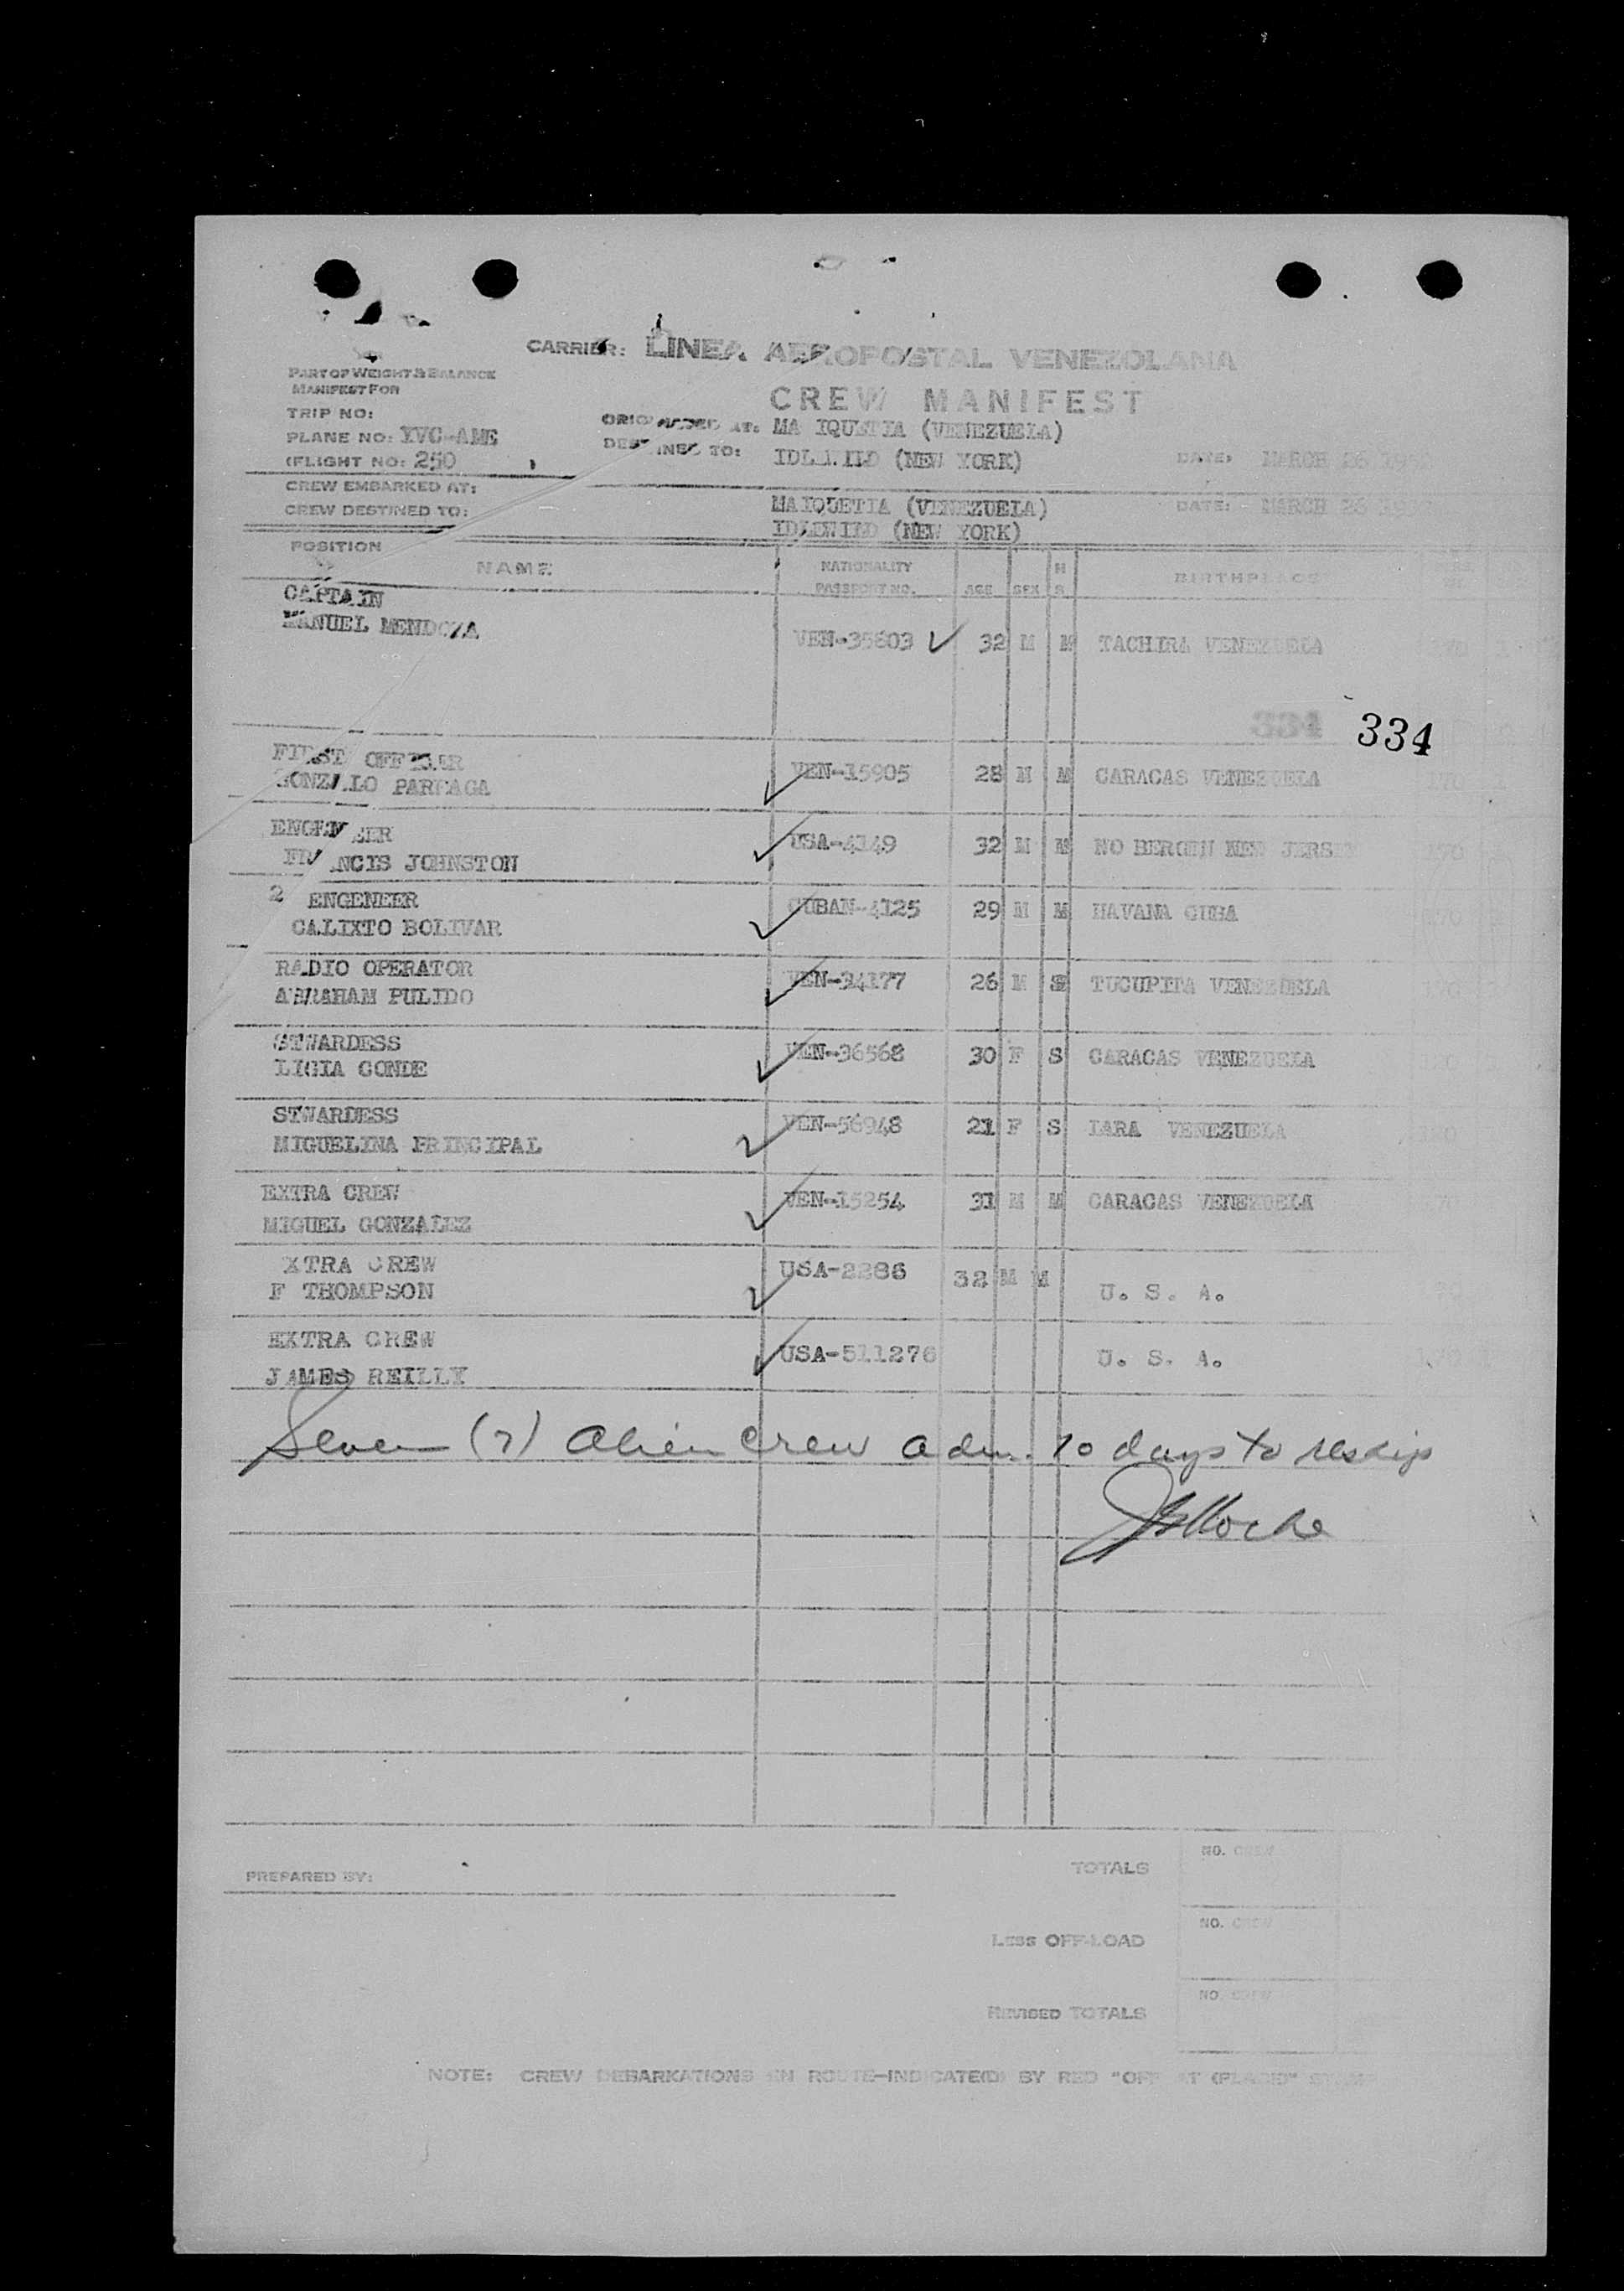 CARRIER: LINEA AEROPOSTAL VENEZOLANA
PART OF WEIGHT & BALANCE
MANIFEST FOR
CREW MANIFEST
TRIP NO:
ORIGINATED AT: MAIQUETIA (VENEZUELA)
PLANE NO: YVC-AME
DESTINED TO: IDLEWILD (NEW YORK) DATE: MARCH 26 19
(FLIGHT NO: 250
CREW EMBARKED AT: MAIQUETIA (VENEZUELA) DATE: MARCH 26 19
CREW DESTINED TO: IDLEWILD (NEW YORK)
POSITION
NAME NATIONALITY PASSPORT NO. AGE SEX M S BIRTHPLACE
CAPTAIN
MANUEL MENDOZA VEN-35803 ✓ 32 M M TACHIRA VENEZUELA
334 334
FIRST OFFICER
GONZALO PAREAGA VEN-15905 28 M M CARACAS VENEZUELA 170
ENGENEER
FRANCIS JOHNSTON USA-4149 32 M M NO BERGEN NEW JERSEY 170
2 ENGENEER
CALIXTO BOLIVAR CUBAN-4125 29 M M HAVANA CUBA 170
RADIO OPERATOR
ABRAHAM PULIDO VEN-34177 26 M S TUCUPITA VENEZUELA 170
STWARDESS
LIGIA CONDE VEN-36568 30 F S CARACAS VENEZUELA
STWARDESS
MIGUELINA PRINCIPAL VEN-56948 21 F S LARA VENEZUELA
EXTRA CREW
MIGUEL GONZALEZ VEN-15254 31 M M CARACAS VENEZUELA 170
XTRA CREW
F THOMPSON USA-2286 32 M M U. S. A.
EXTRA CREW
JAMES REILLY USA-511276 U. S. A.
Seven (7) alien crew adm. 10 days to reship
PREPARED BY:
TOTALS NO. CREW
LESS OFF-LOAD NO. CREW
REVISED TOTALS NO. CREW
NOTE: CREW DEBARKATIONS EN ROUTE-INDICATE(D) BY RED "OFF AT (PLACE)" STAMP